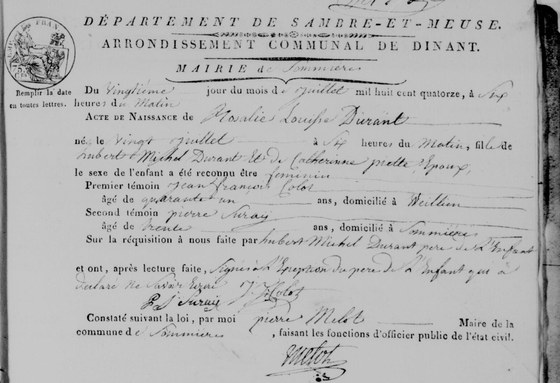 DÉPARTEMENT DE SAMBRE-ET-MEUSE.
ARRONDISSEMENT COMMUNAL DE DINANT.
MAIRIE de Sommiere
Remplir la date
en toutes lettres.
Du vingtième jour du mois de juillet mil huit cent quatorze, à six
heures du Matin
ACTE DE NAISSANCE de Rosalie Durant
née le vingt juillet à six heures du Matin, fille de
hubert Michel Durant Et de Catherinne piette Epoux,
le sexe de l'enfant a été reconnu être femenin
Premier témoin jean françois Colot
âgé de quarante un ans, domicilié à Weillien
Second témoin pierre
âgé de trente ans, domicilié à Sommiere
Sur la réquisition à nous faite par hubert Michel Durant pere de L'Enfant
et ont, après lecture faite, signés a L'Exeption du pere de L'Enfant qui a
declaré ne savoir Ecrire
Constaté suivant la loi, par moi pierre Melot Maire de la
commune de Sommiere, faisant les fonctions d'officier public de l'état civil.
melot